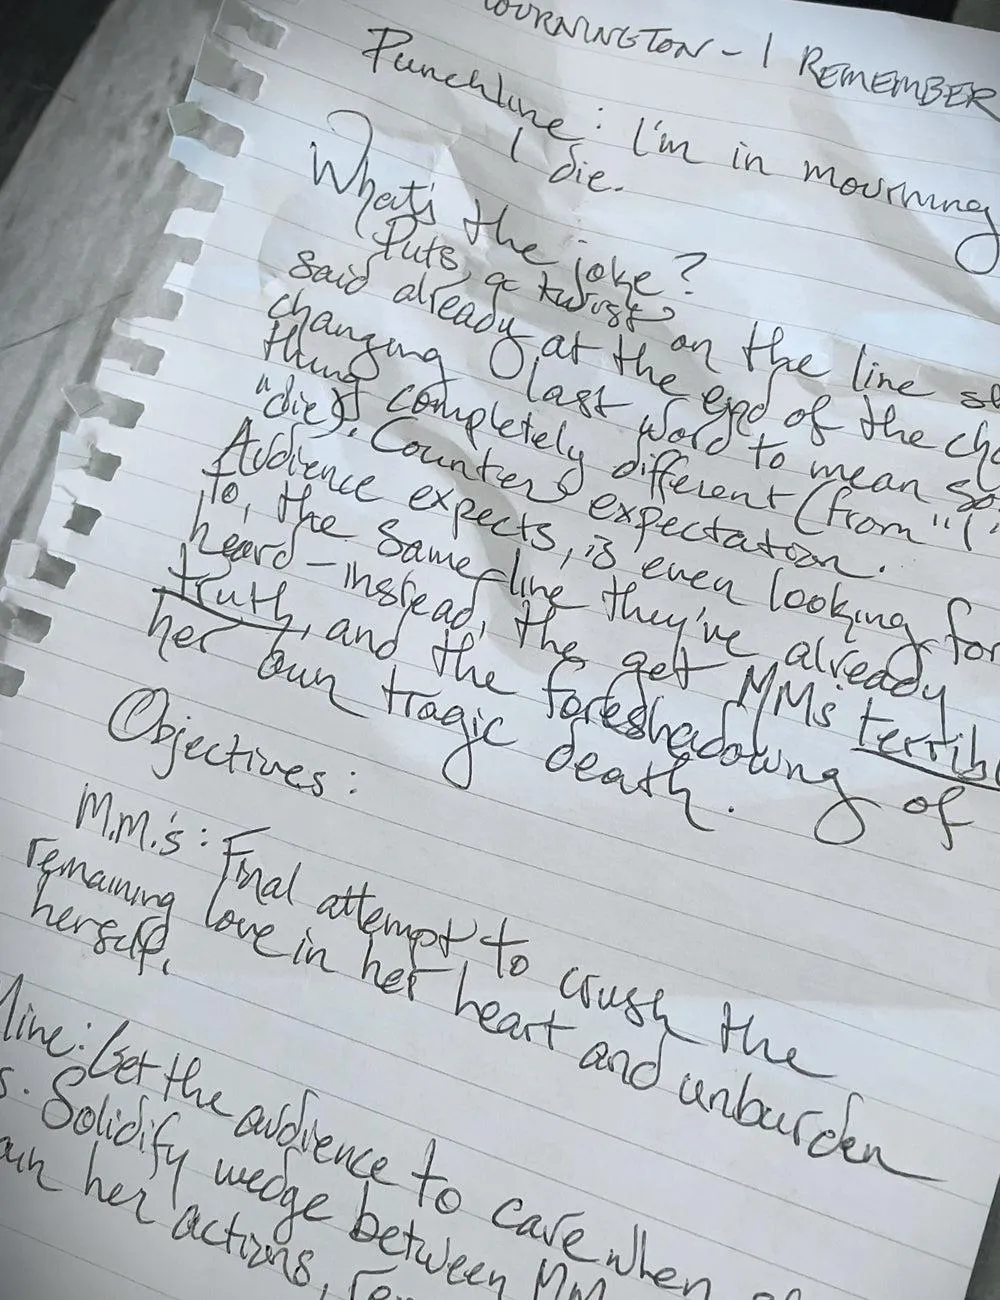 MOURNINGTON - I REMEMBER
Punchline: I'm in mourning
I die.
What's the joke?
Puts a twist on the line
said already at the end of the
changing last word to mean
thing completely different (from "
"die"). Counters expectation.
Audience expects, is even looking for
to, the same line they've already
heard - instead, the get MMs
truth, and the foreshadowing of
her own tragic death.
Objectives:
M.M.'s: Final attempt to crush the
remaining love in her heart and unburden
herself.
line: Get the audience to care when
s. Solidify wedge between MM
her actions,